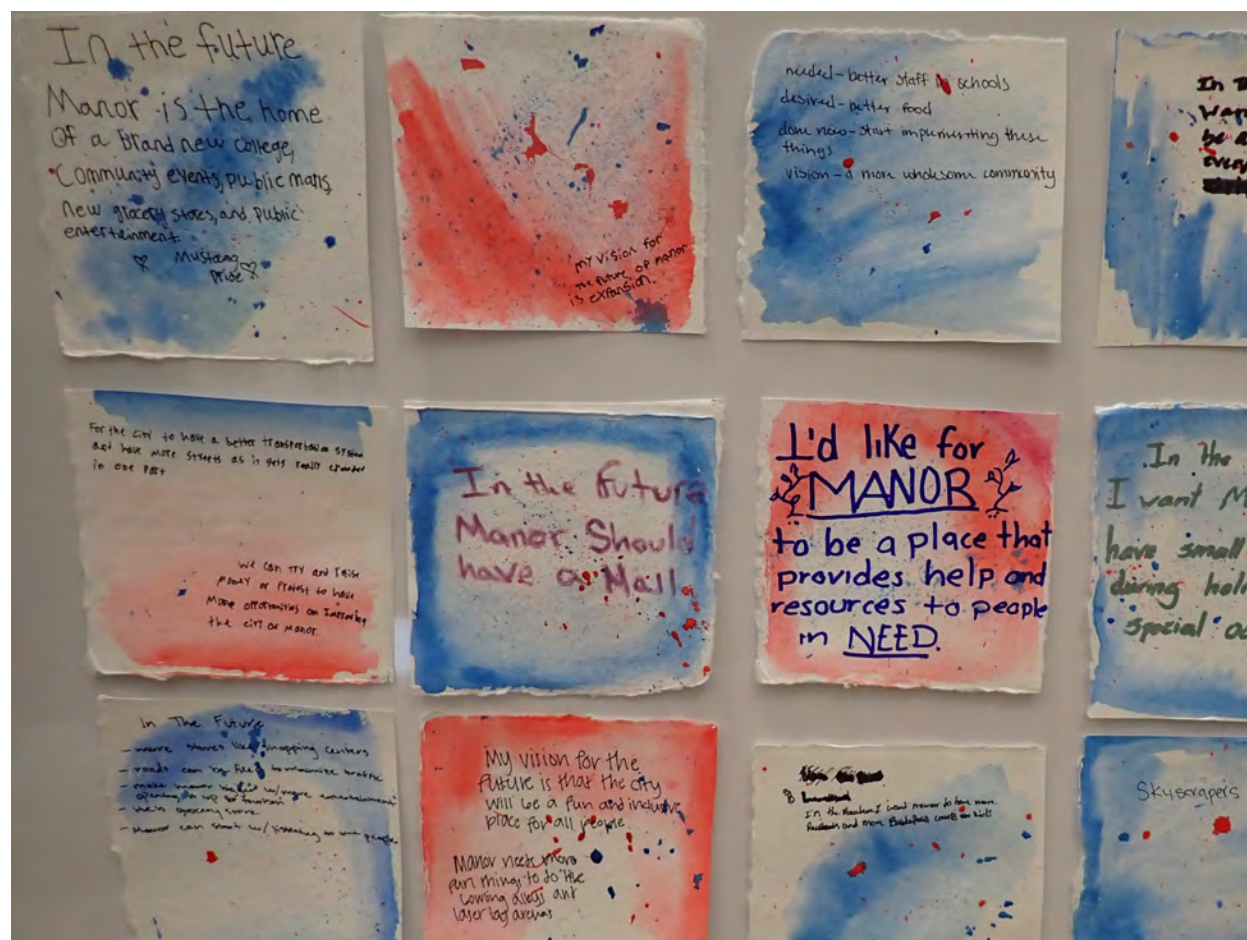 In the future
Manor is the home
Of a Brand new college,
Community events, public maris,
new grocery stores, and, public
entertainment.
Mustang
Pride
my vision for
the future of manor
is expansion.
needed - better staff in schools
desired - better food
done now - start implementing these
things
vision - a more wholesome community
In T
War
be a
every
For the city to have a better transportation system
and have more streets as it gets really crowded
in one part
we can try and raise
money or protest to have
more opportunities on improving
the city of Manor
In the future
Manor Should
have a Mall.
I'd like for
MANOR
to be a place that
provides help and
resources to people
in NEED.
In the
I want M
have small
during holi
special oc
In The Future
- more stores like shopping centers
- roads can be to minimize traffic
- make manor w/ more entertainment
opening up to tourism
- grocery store
- Manor can start w/ listening to people
My vision for the
future is that the city
will be a fun and inclusive
place for all people.
Manor needs more
fun things to do like
bowling alleys and
laser tag arenas
In the I want manor to have more
and more Basketball courts for kids
Skyscrapers